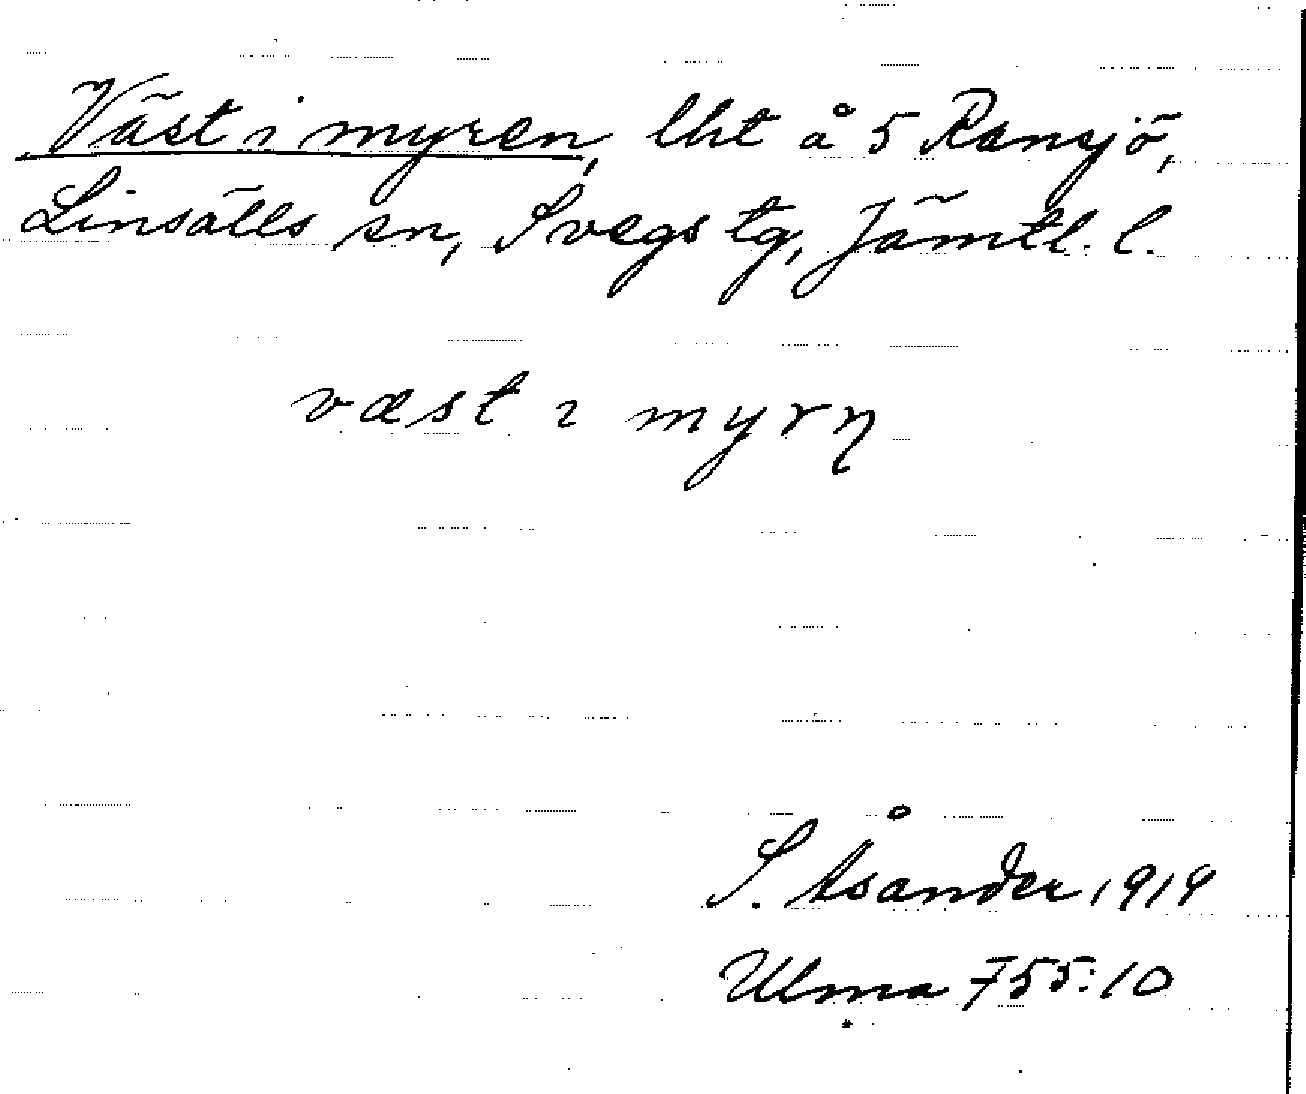 Väst i myren, lht å 5 Ransjö,
Linsälls sn, Svegs tg, Jämtl. l.
væst ɩ myrn̥
S. Åsander 1919
Ulma 755:10